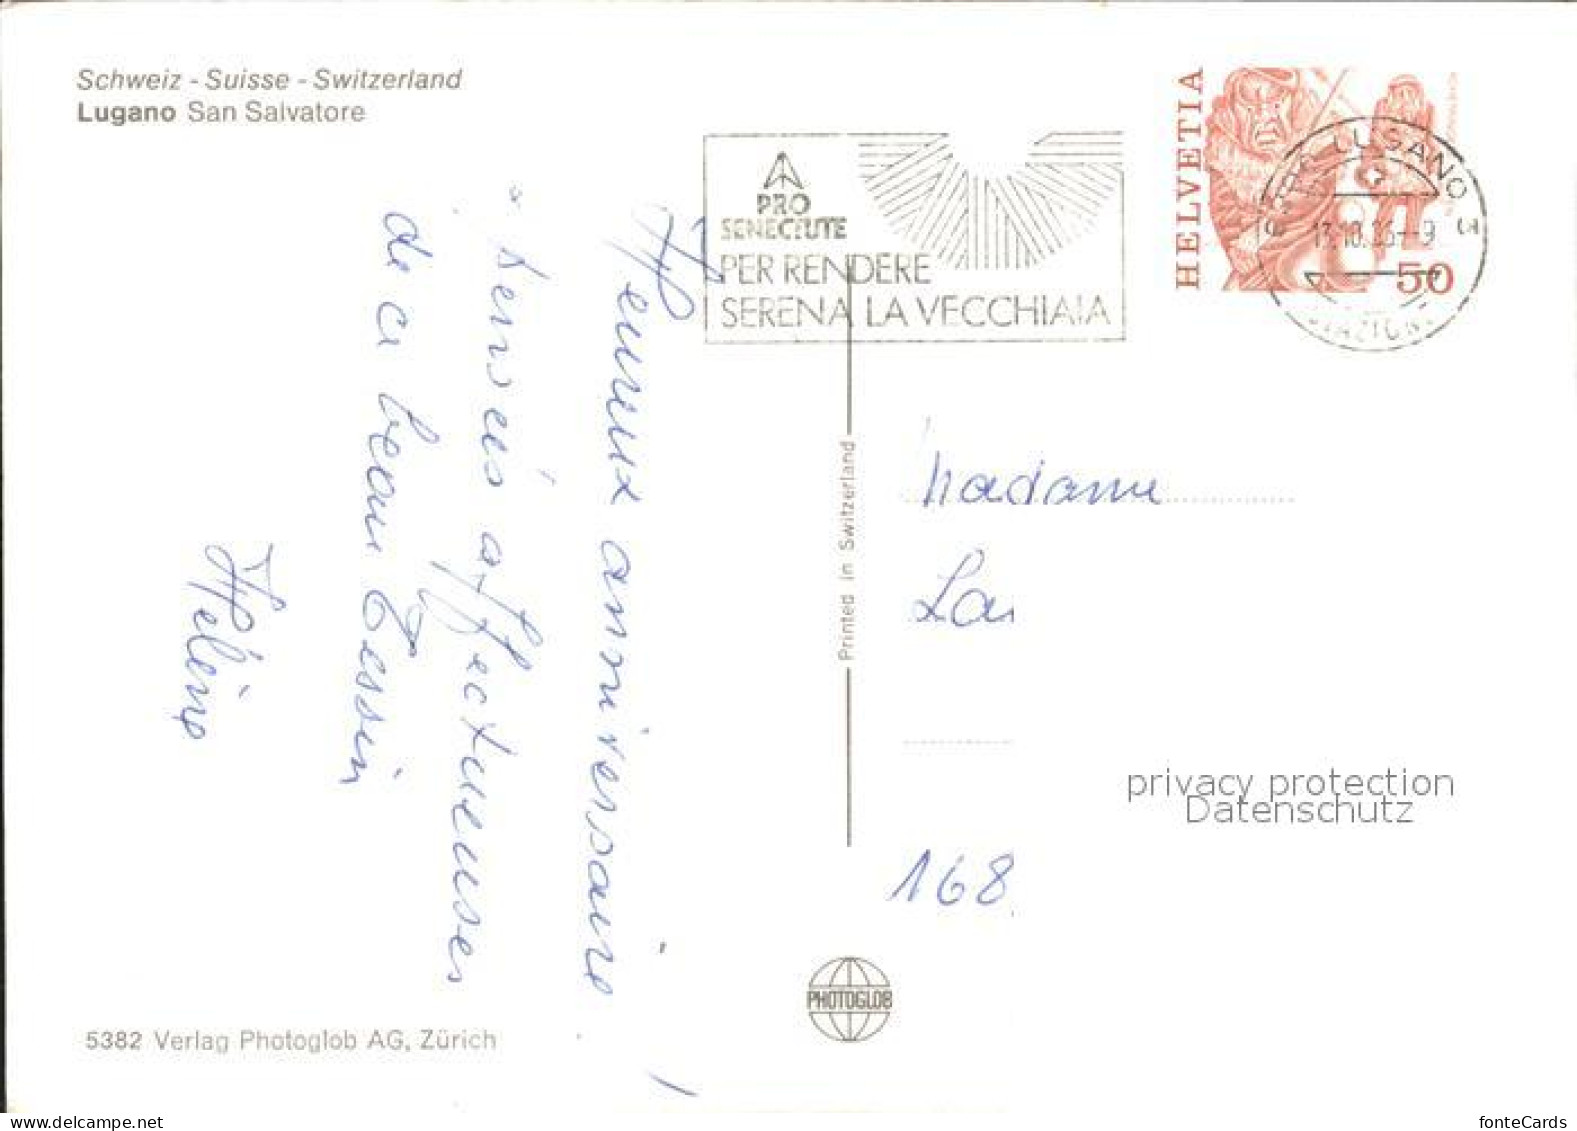 Schweiz - Suisse - Switzerland
Lugano San Salvatore
PRO
SENECTUTE
PER RENDERE
SERENA LA VECCHIAIA
HELVETIA
50
LUGANO 3
13.10.86--9
Heureux anniversaire !
Pensées affectueuses
de ce beau Tessin
Hélène
Printed in Switzerland
Madame
Lau
168
privacy protection
Datenschutz
PHOTOGLOB
5382 Verlag Photoglob AG, Zürich
www.delcampe.net
fonteCards